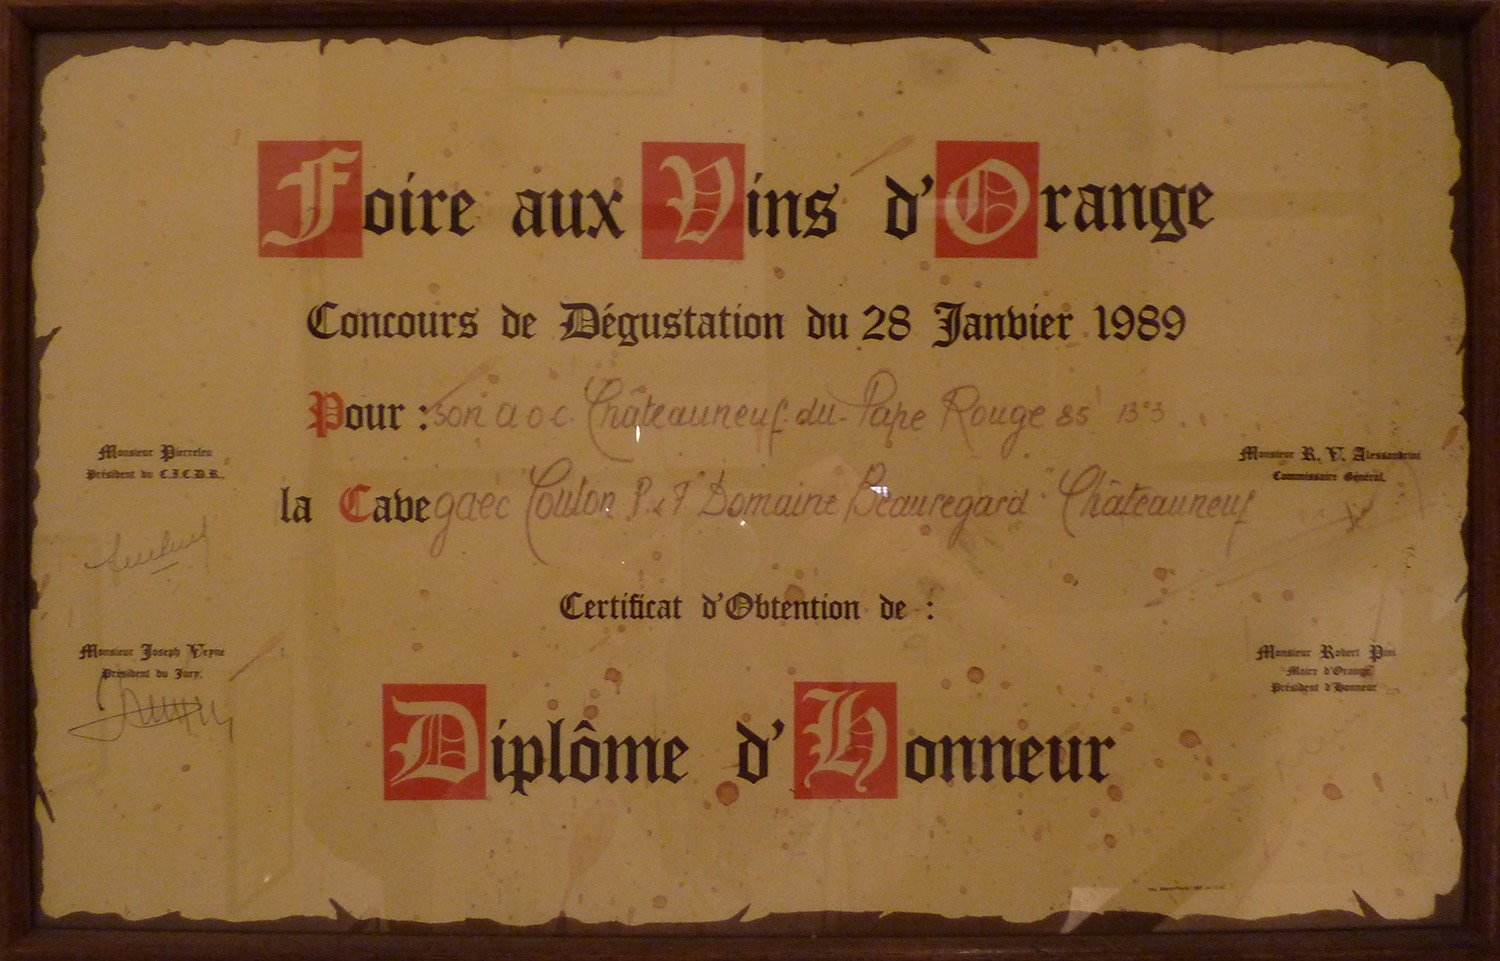 Foire aux Vins d'Orange
Concours de Dégustation du 28 Janvier 1989
Pour : son a o c. Châteauneuf-du-Pape Rouge 85 13°3
Monsieur Pierrefeu
Président du C.I.C.D.R.
Monsieur R. V. Alessandrini
Commissaire Général,
la Cave gaec Coulon P. et F "Domaine Beauregard" Châteauneuf
Certificat d'Obtention de :
Monsieur Joseph Veyne
Président du Jury,
Monsieur Robert Pini
Maire d'Orange
Président d'Honneur
Diplôme d'Honneur